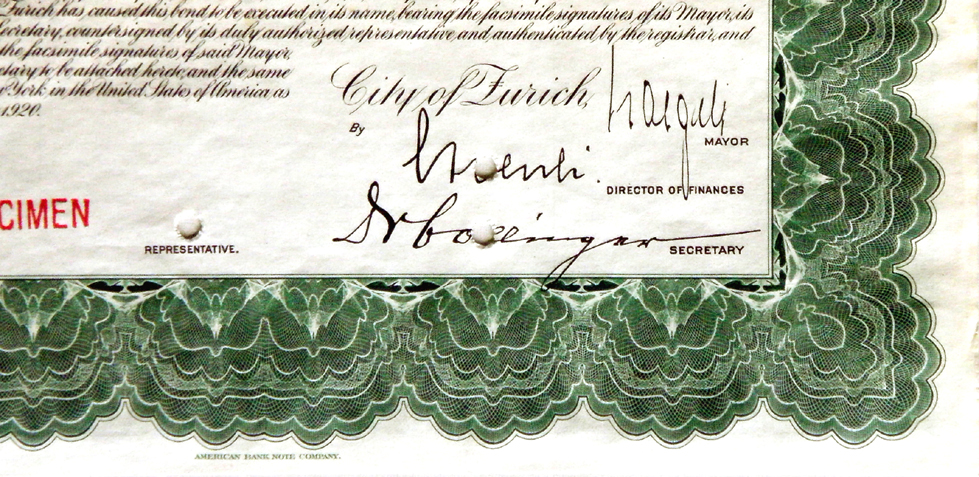 Zurich has caused this bond to be executed in its name, bearing the facsimile signatures of its Mayor, its
ecretary, countersigned by its duly authorized representative, and authenticated by the registrar, and
the facsimile signatures of said Mayor,
etary to be attached hereto, and the same
York in the United States of America as
1920.
City of Zurich,
By
MAYOR
DIRECTOR OF FINANCES
CIMEN
Dr Bollinger
REPRESENTATIVE.
SECRETARY
AMERICAN BANK NOTE COMPANY.